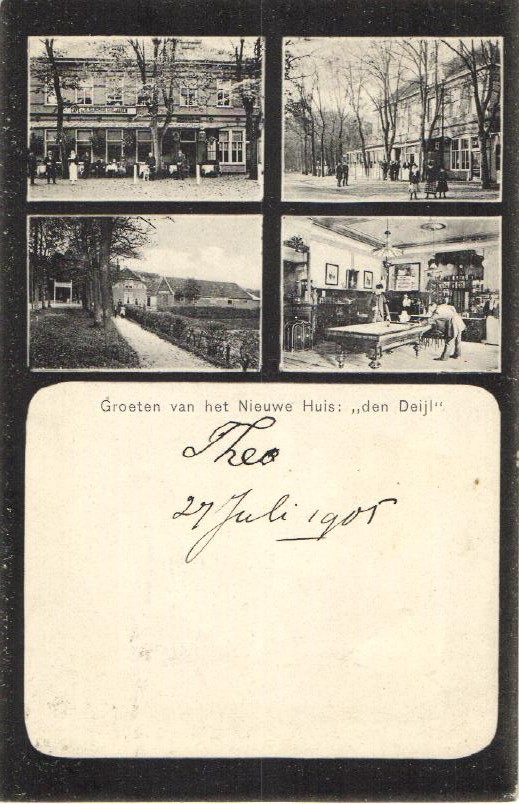 Groeten van het Nieuwe Huis: „den Deijl“
Theo
27 Juli 1905